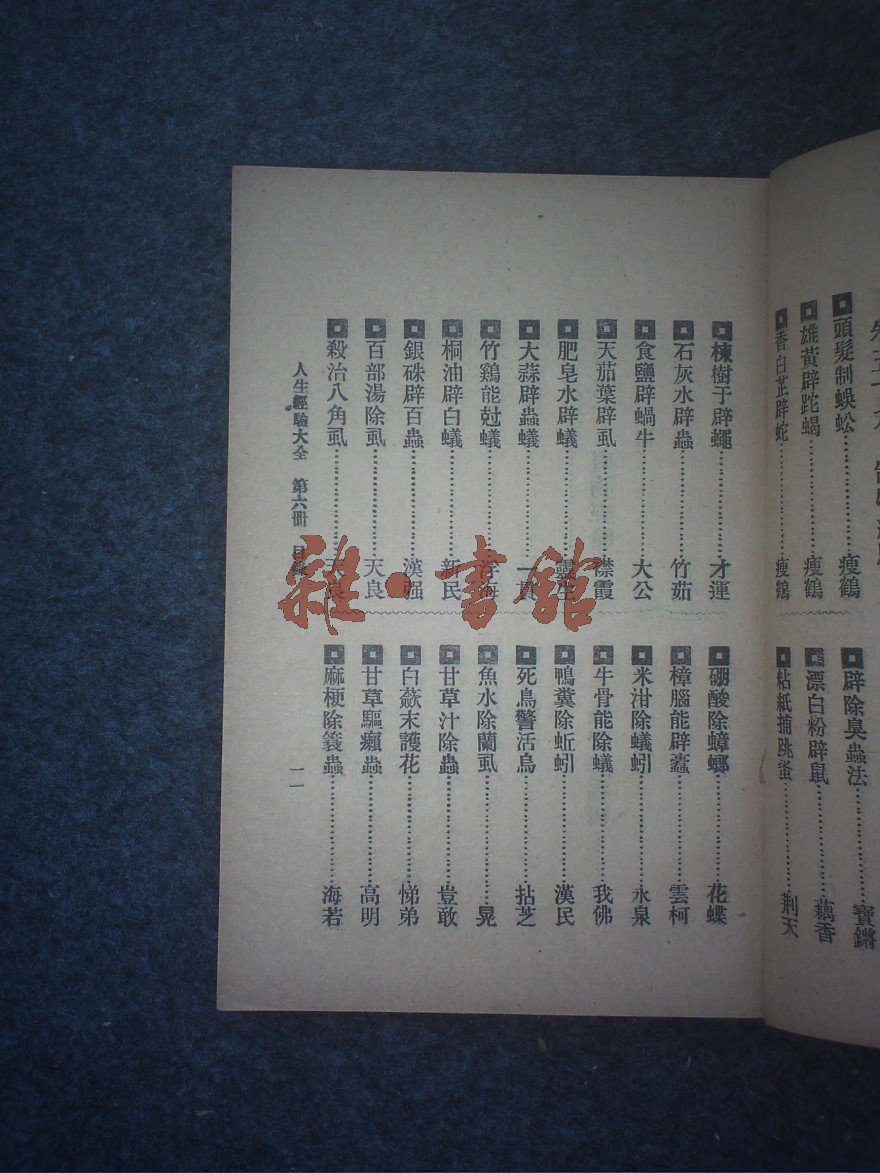 頭髮制蜈蚣……瘦鶴
雄黃辟蛇蝎……瘦鶴
香白芷辟蛇……瘦鶴
辟除臭蟲法……寶鏘
漂白粉辟鼠……藕香
粘紙捕跳蚤……荆天
楝樹子辟蠅……才運
石灰水辟蟲……竹茹
食鹽辟蝸牛……大公
天茄葉辟虱……襟霞
肥皂水辟蟻……靈生
大蒜辟蟲蟻……一貫
竹鷄能尅蟻……浮海
桐油辟白蟻……新民
銀硃辟百蟲……漢强
百部湯除虱……天良
殺治八角虱……天良
硼酸除蟑螂……花蝶
樟腦能辟蠹……雲柯
米泔除蟻蚓……永泉
牛骨能除蟻……我佛
鴨糞除蚯蚓……漢民
死鳥警活鳥……拈芝
魚水除蘭虱……晃
甘草汁除蟲……豈敢
白蘞末護花……悌弟
甘草驅癩蟲……高明
麻梗除簑蟲……海若
人生經驗大全 第六冊 目錄
一一
雜·書館